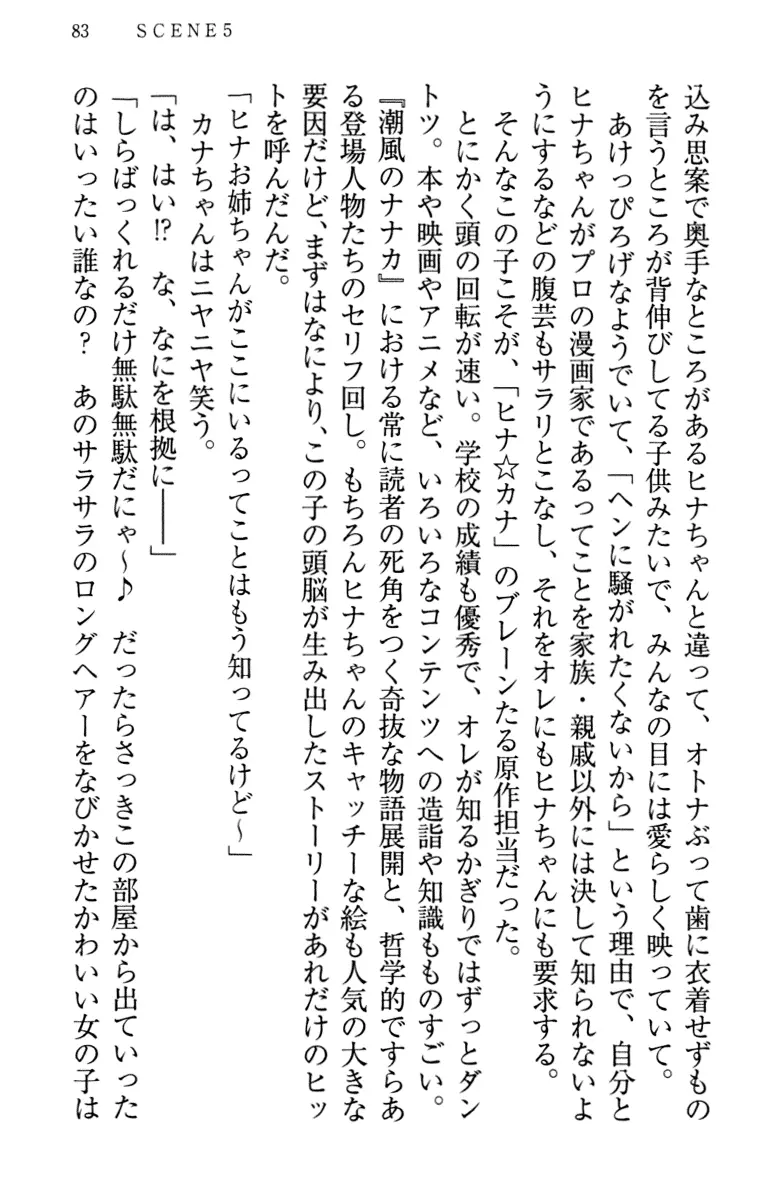 83　SCENE5
込み思案で奥手なところがあるヒナちゃんと違って、オトナぶって歯に衣着せずもの
を言うところが背伸びしてる子供みたいで、みんなの目には愛らしく映っていて。
　あけっぴろげなようでいて、「ヘンに騒がれたくないから」という理由で、自分と
ヒナちゃんがプロの漫画家であるってことを家族・親戚以外には決して知られないよ
うにするなどの腹芸もサラリとこなし、それをオレにもヒナちゃんにも要求する。
　そんなこの子こそが、「ヒナ☆カナ」のブレーンたる原作担当だった。
　とにかく頭の回転が速い。学校の成績も優秀で、オレが知るかぎりではずっとダン
トツ。本や映画やアニメなど、いろいろなコンテンツへの造詣や知識もものすごい。
『潮風のナナカ』における常に読者の死角をつく奇抜な物語展開と、哲学的ですらあ
る登場人物たちのセリフ回し。もちろんヒナちゃんのキャッチーな絵も人気の大きな
要因だけど、まずはなにより、この子の頭脳が生み出したストーリーがあれだけのヒッ
トを呼んだんだ。
「ヒナお姉ちゃんがここにいるってことはもう知ってるけど～」
　カナちゃんはニヤニヤ笑う。
「は、はい!?　な、なにを根拠に――」
「しらばっくれるだけ無駄無駄だにゃ～♪　だったらさっきこの部屋から出ていった
のはいったい誰なの？　あのサラサラのロングヘアーをなびかせたかわいい女の子は